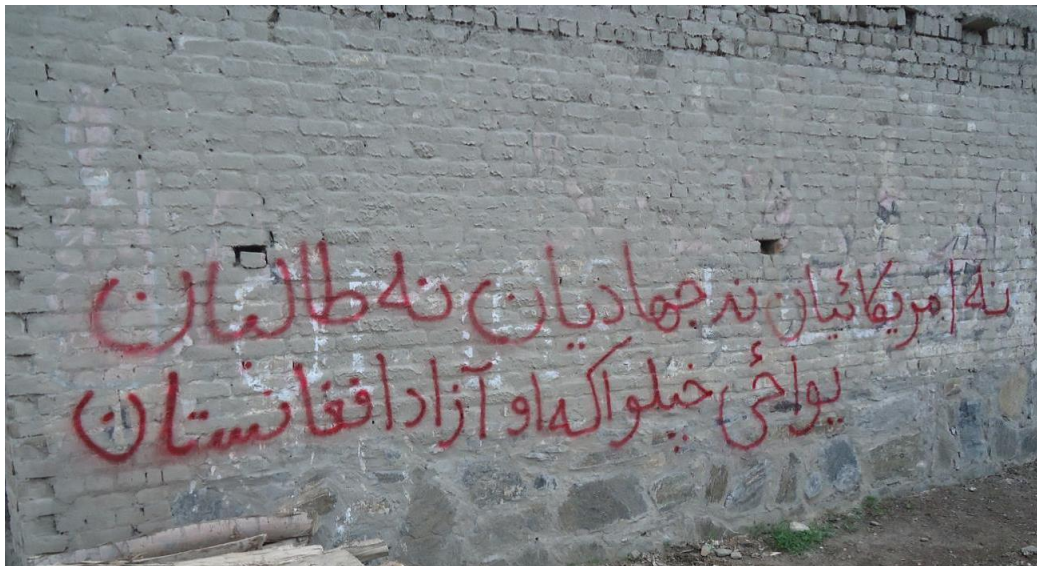 نه امریکائیان نه جهادیان نه طالبان
یواځې خپلواکه او آزاد افغانستان